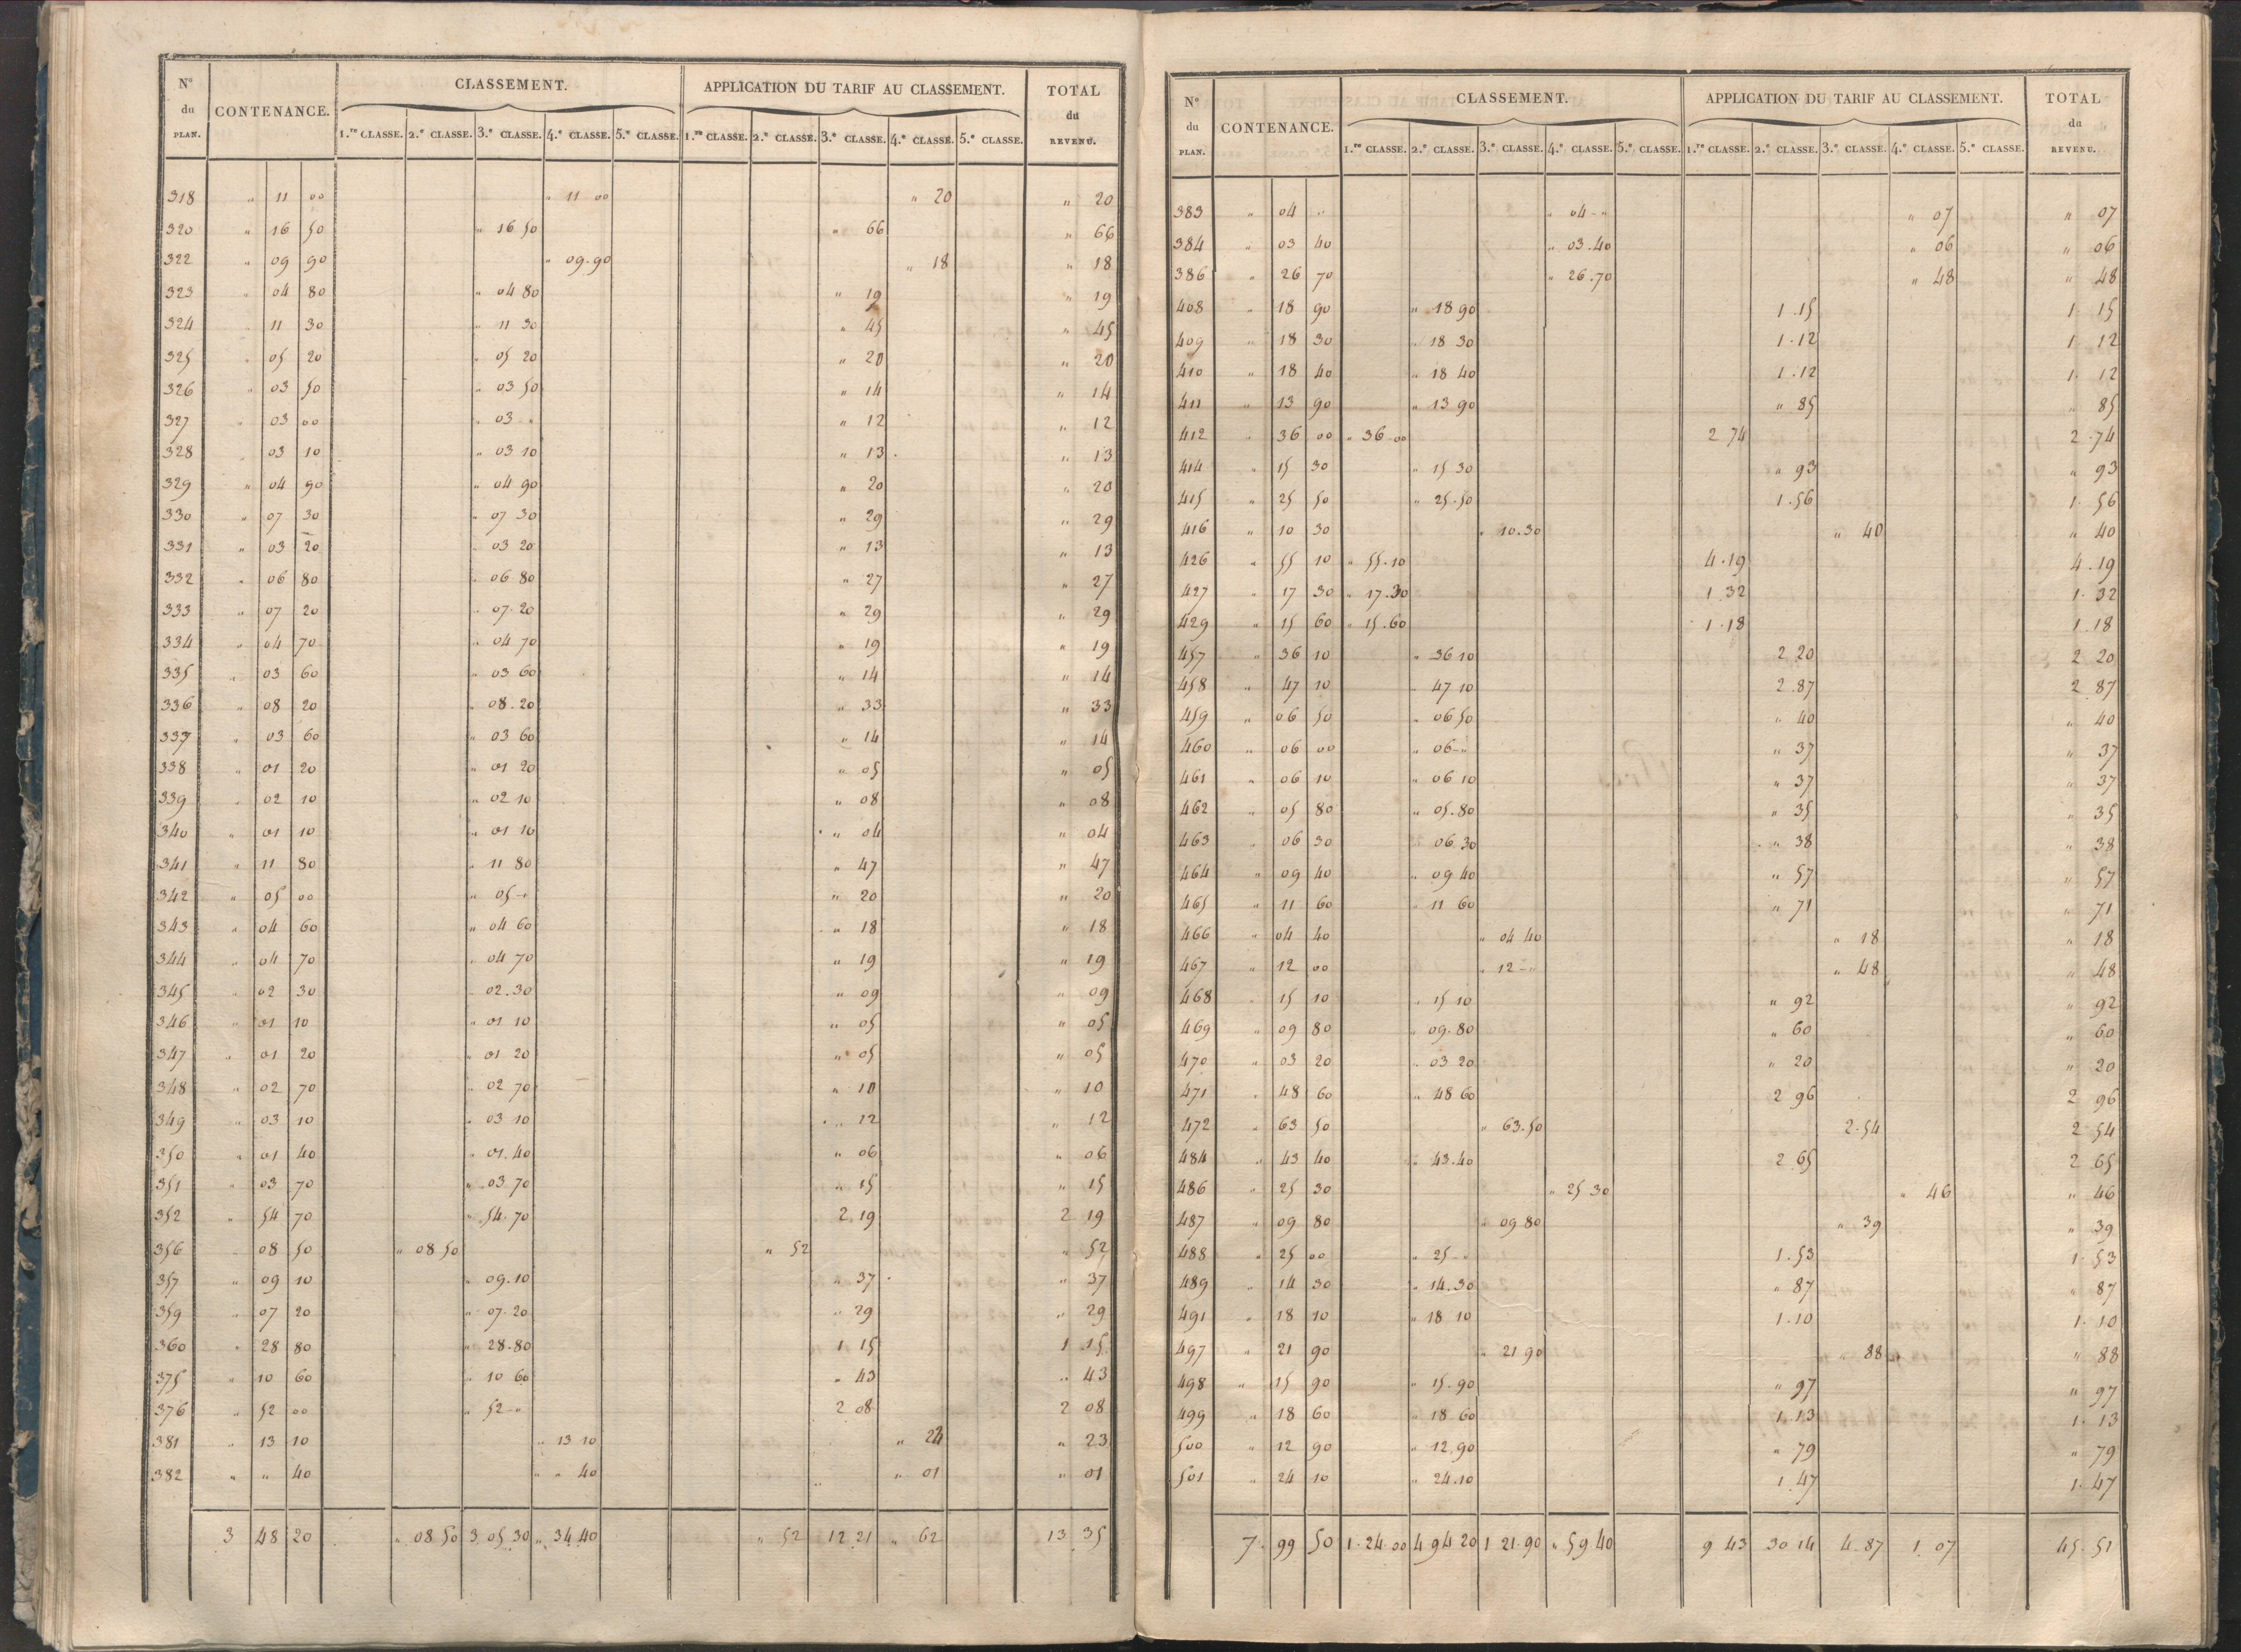 N° du PLAN. CONTENANCE. CLASSEMENT. APPLICATION DU TARIF AU CLASSEMENT. TOTAL du REVENU.
1.re CLASSE. 2.e CLASSE. 3.e CLASSE. 4.e CLASSE. 5.e CLASSE. 1.re CLASSE. 2.e CLASSE. 3.e CLASSE. 4.e CLASSE. 5.e CLASSE.
318 " 11 00 " 11 00 " 20 " 20
320 " 16 50 " 16 50 " 66 " 66
322 " 09 90 " 09.90 " 18 " 18
323 " 04 80 " 04 80 " 19 " 19
324 " 11 30 " 11 30 " 45 " 45
325 " 05 20 " 05 20 " 20 " 20
326 " 03 50 " 03 50 " 14 " 14
327 " 03 00 " 03 - " " 12 " 12
328 " 03 10 " 03 10 " 13 " 13
329 " 04 90 " 04 90 " 20 " 20
330 " 07 30 " 07 30 " 29 " 29
331 " 03 20 " 03 20 " 13 " 13
332 " 06 80 " 06 80 " 27 " 27
333 " 07 20 " 07.20 " 29 " 29
334 " 04 70 " 04 70 " 19 " 19
335 " 03 60 " 03 60 " 14 " 14
336 " 08 20 " 08.20 " 33 " 33
337 " 03 60 " 03 60 " 14 " 14
338 " 01 20 " 01 20 " 05 " 05
339 " 02 10 " 02 10 " 08 " 08
340 " 01 10 " 01 10 " 04 " 04
341 " 11 80 " 11 80 " 47 " 47
342 " 05 00 " 05 - " " 20 " 20
343 " 04 60 " 04 60 " 18 " 18
344 " 04 70 " 04 70 " 19 " 19
345 " 02 30 " 02.30 " 09 " 09
346 " 01 10 " 01 10 " 05 " 05
347 " 01 20 " 01 20 " 05 " 05
348 " 02 70 " 02 70 " 10 " 10
349 " 03 10 " 03 10 " 12 " 12
350 " 01 40 " 01.40 " 06 " 06
351 " 03 70 " 03.70 " 15 " 15
352 " 54 70 " 54.70 2 19 2 19
356 " 08 50 " 08 50 " 52 " 52
357 " 09 10 " 09.10 " 37 " 37
359 " 07 20 " 07.20 " 29 " 29
360 " 28 80 " 28.80 1 15 1 15
375 " 10 60 " 10 60 " 43 " 43
376 " 52 00 " 52 - " 2 08 2 08
381 " 13 10 " 13 10 " " 23
382 " " 40 " " 40 " 01 " 01
3 48 20 " 08 50 3 05 30 " 34 40 " 52 12 21 " 62 13 35
N° du PLAN. CONTENANCE. CLASSEMENT. APPLICATION DU TARIF AU CLASSEMENT. TOTAL du REVENU.
1.re CLASSE. 2.e CLASSE. 3.e CLASSE. 4.e CLASSE. 5.e CLASSE. 1.re CLASSE. 2.e CLASSE. 3.e CLASSE. 4.e CLASSE. 5.e CLASSE.
383 " 04 " " 04 - " " 07 " 07
384 " 03 40 " 03.40 " 06 " 06
386 " 26 70 " 26.70 " 48 " 48
408 " 18 90 " 18 90 1.15 1 15
409 " 18 30 " 18 30 1.12 1 12
410 " 18 40 " 18 40 1.12 1. 12
411 " 13 90 " 13 90 " 85 " 85
412 " 36 00 " 36 00 2 74 2.74
414 " 15 30 " 15 30 " 93 " 93
415 " 25 50 " 25.50 1.56 1. 56
416 " 10 30 " 10.30 " 40 " 40
426 " 55 10 " 55.10 4.19 4.19
427 " 17 30 " 17.30 1 32 1. 32
429 " 15 60 " 15.60 1.18 1.18
457 " 36 10 " 36 10 2 20 2 20
458 " 47 10 " 47 10 2.87 2 87
459 " 06 50 " 06 50 " 40 " 40
460 " 06 00 " 06 - " " 37 " 37
461 " 06 10 " 06 10 " 37 " 37
462 " 05 80 " 05.80 " 35 " 35
463 " 06 30 " 06.30 " 38 " 38
464 " 09 40 " 09 40 " 57 " 57
465 " 11 60 " 11 60 " 71 " 71
466 " 04 40 " 04 40 " 18 " 18
467 " 12 00 " 12 - " " 48 " 48
468 " 15 10 " 15 10 " 92 " 92
469 " 09 80 " 09.80 " 60 " 60
470 " 03 20 " 03 20 " 20 " 20
471 " 48 60 " 48 60 2 96 2 96
472 " 63 50 " 63.50 2.54 2 54
484 " 43 40 " 43.40 2 65 2 65
486 " 25 30 " 25 30 " 46 " 46
487 " 09 80 " 09 80 " 39 " 39
488 " 25 00 " 25 - " 1.53 1. 53
489 " 14 30 " 14.30 " 87 " 87
491 " 18 10 " 18 10 1.10 1. 10
497 " 21 90 " 21 90 " 88 " 88
498 " 15 90 " 15.90 " 97 " 97
499 " 18 60 " 18 60 1.13 1. 13
500 " 12 90 " 12.90 " 79 " 79
501 " 24 10 " 24.10 1.47 1. 47
7. 99 50 1.24.00 4 94 20 1 21.90 " 59 40 9 43 30 14 4.87 1 07 45.51